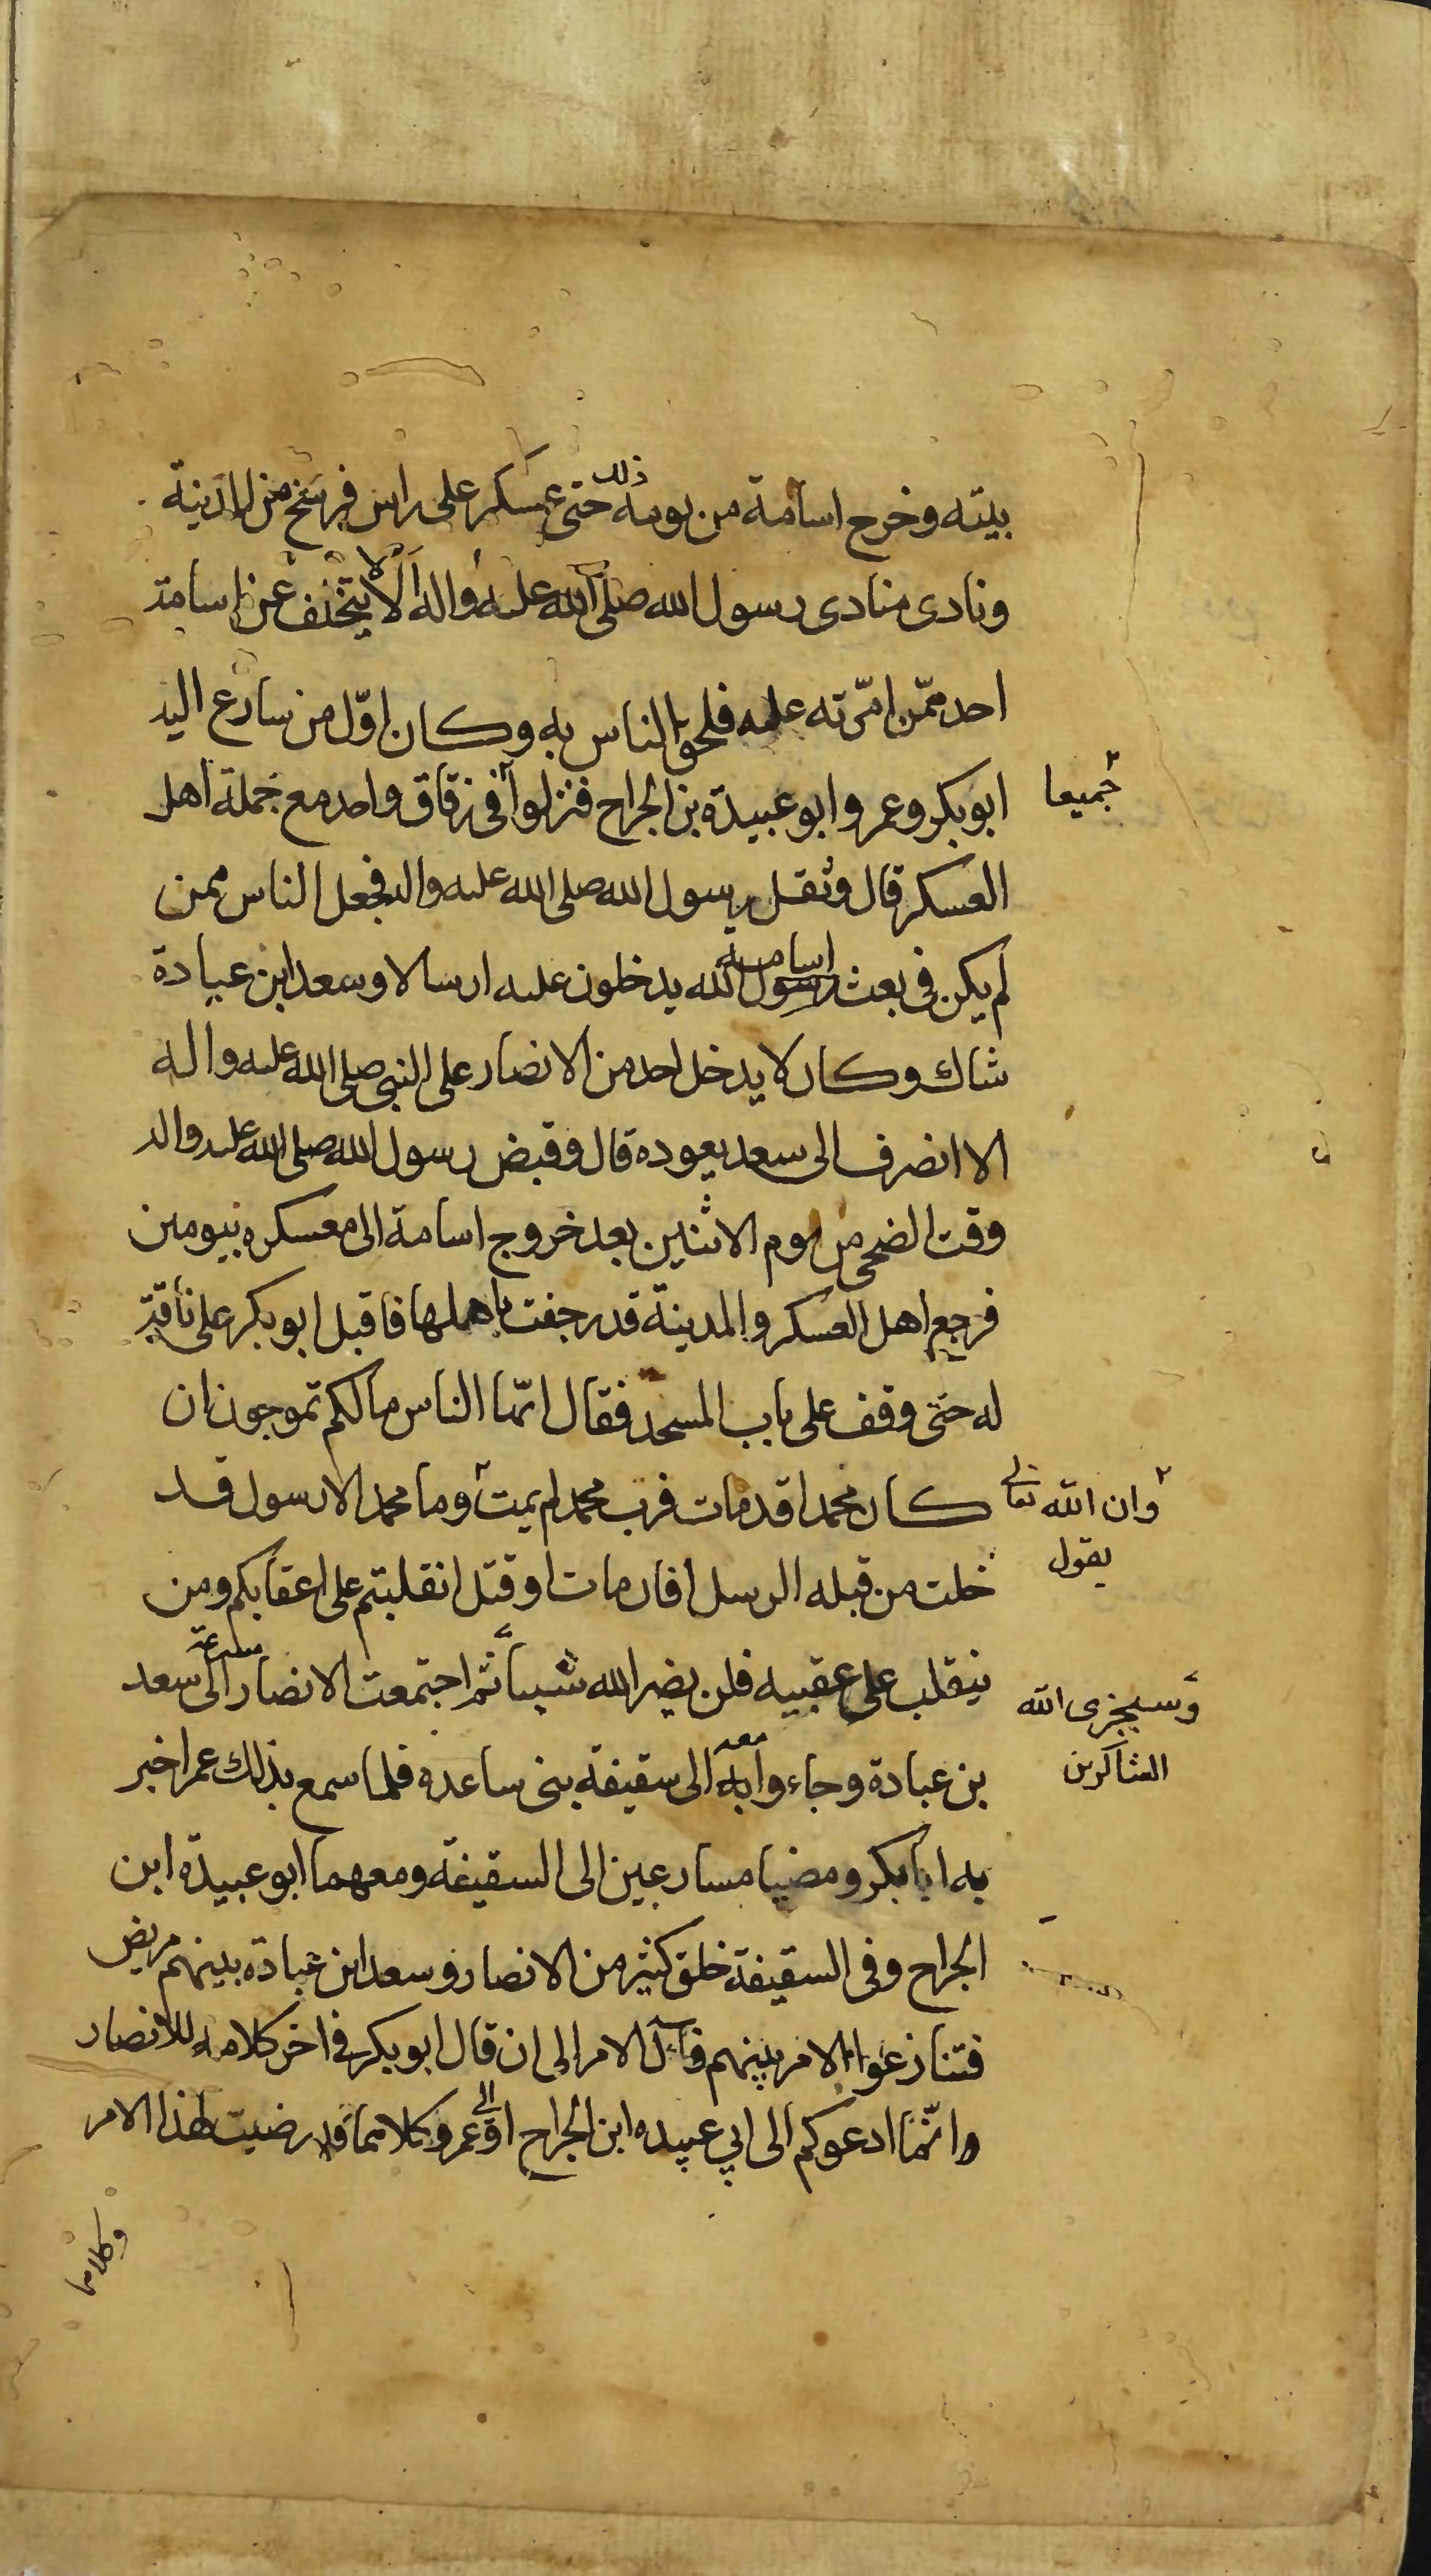 بيته وخرج اسامة من يومه ذلك حتى عسكر على راس فرسخ من المدينة
ونادى منادى رسول الله صلى الله عليه واله الا لا يتخلف عن اسامة
احد ممّن امّرته عليه فلحق الناس به وكان اوّل من سارع اليه
ابوبكر وعمر وابو عبيدة بن الجراح فنزلوا فى زقاق واحد مع جملة اهل
جميعا
العسكر قال وثقل رسول الله صلى الله عليه واله فجعل الناس ممن
لم يكن فى بعث رسول الله اسامة يدخلون عليه ارسالا وسعد ابن عبادة
شاك وكان لا يدخل احد من الانصار على النبى صلى الله عليه واله
الا انصرف الى سعد يعوده قال وقبض رسول الله صلى الله عليه واله
وقت الضحى من يوم الاثنين بعد خروج اسامة الى معسكره بيومين
فرجع اهل العسكر والمدينة قد رجفت باهلها فاقبل ابو بكر على ناقة
له حتى وقف على باب المسجد فقال ايّها الناس مالكم تموجون ان
كان محمدا قد مات فرب محمد لم يمت وما محمد الا رسول قد
وان الله تعالى
يقول
خلت من قبله الرسل افان مات او قتل انقلبتم على اعقابكم ومن
ينقلب على عقبيه فلن يضر الله شيئا ثم اجتمعت الانصار الى سعد
وسيجزى الله
الشاكرين
بن عبادة وجاءوا به معه الى سقيفة بنى ساعده فلما سمع بذلك عمر اخبر
به ابا بكر ومضيا مسارعين الى السقيفة ومعهما ابو عبيدة ابن
الجراح وفى السقيفة خلق كثير من الانصار وسعد ابن عبادة بينهم مريض
فتنازعوا الامر بينهم فآل الامر الى ان قال ابو بكر فى اخر كلامه للانصار
وانّما ادعوكم الى ابي عبيده ابن الجراح او الى عمر وكلاهما قد رضيت لهذا الامر
وكلاهما